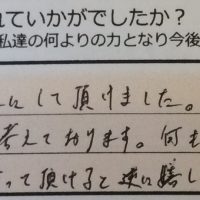 れていかがでしたか？
私達の何よりの力となり今後
にして頂けました。
考えております。何も
って頂けると逆に嬉し